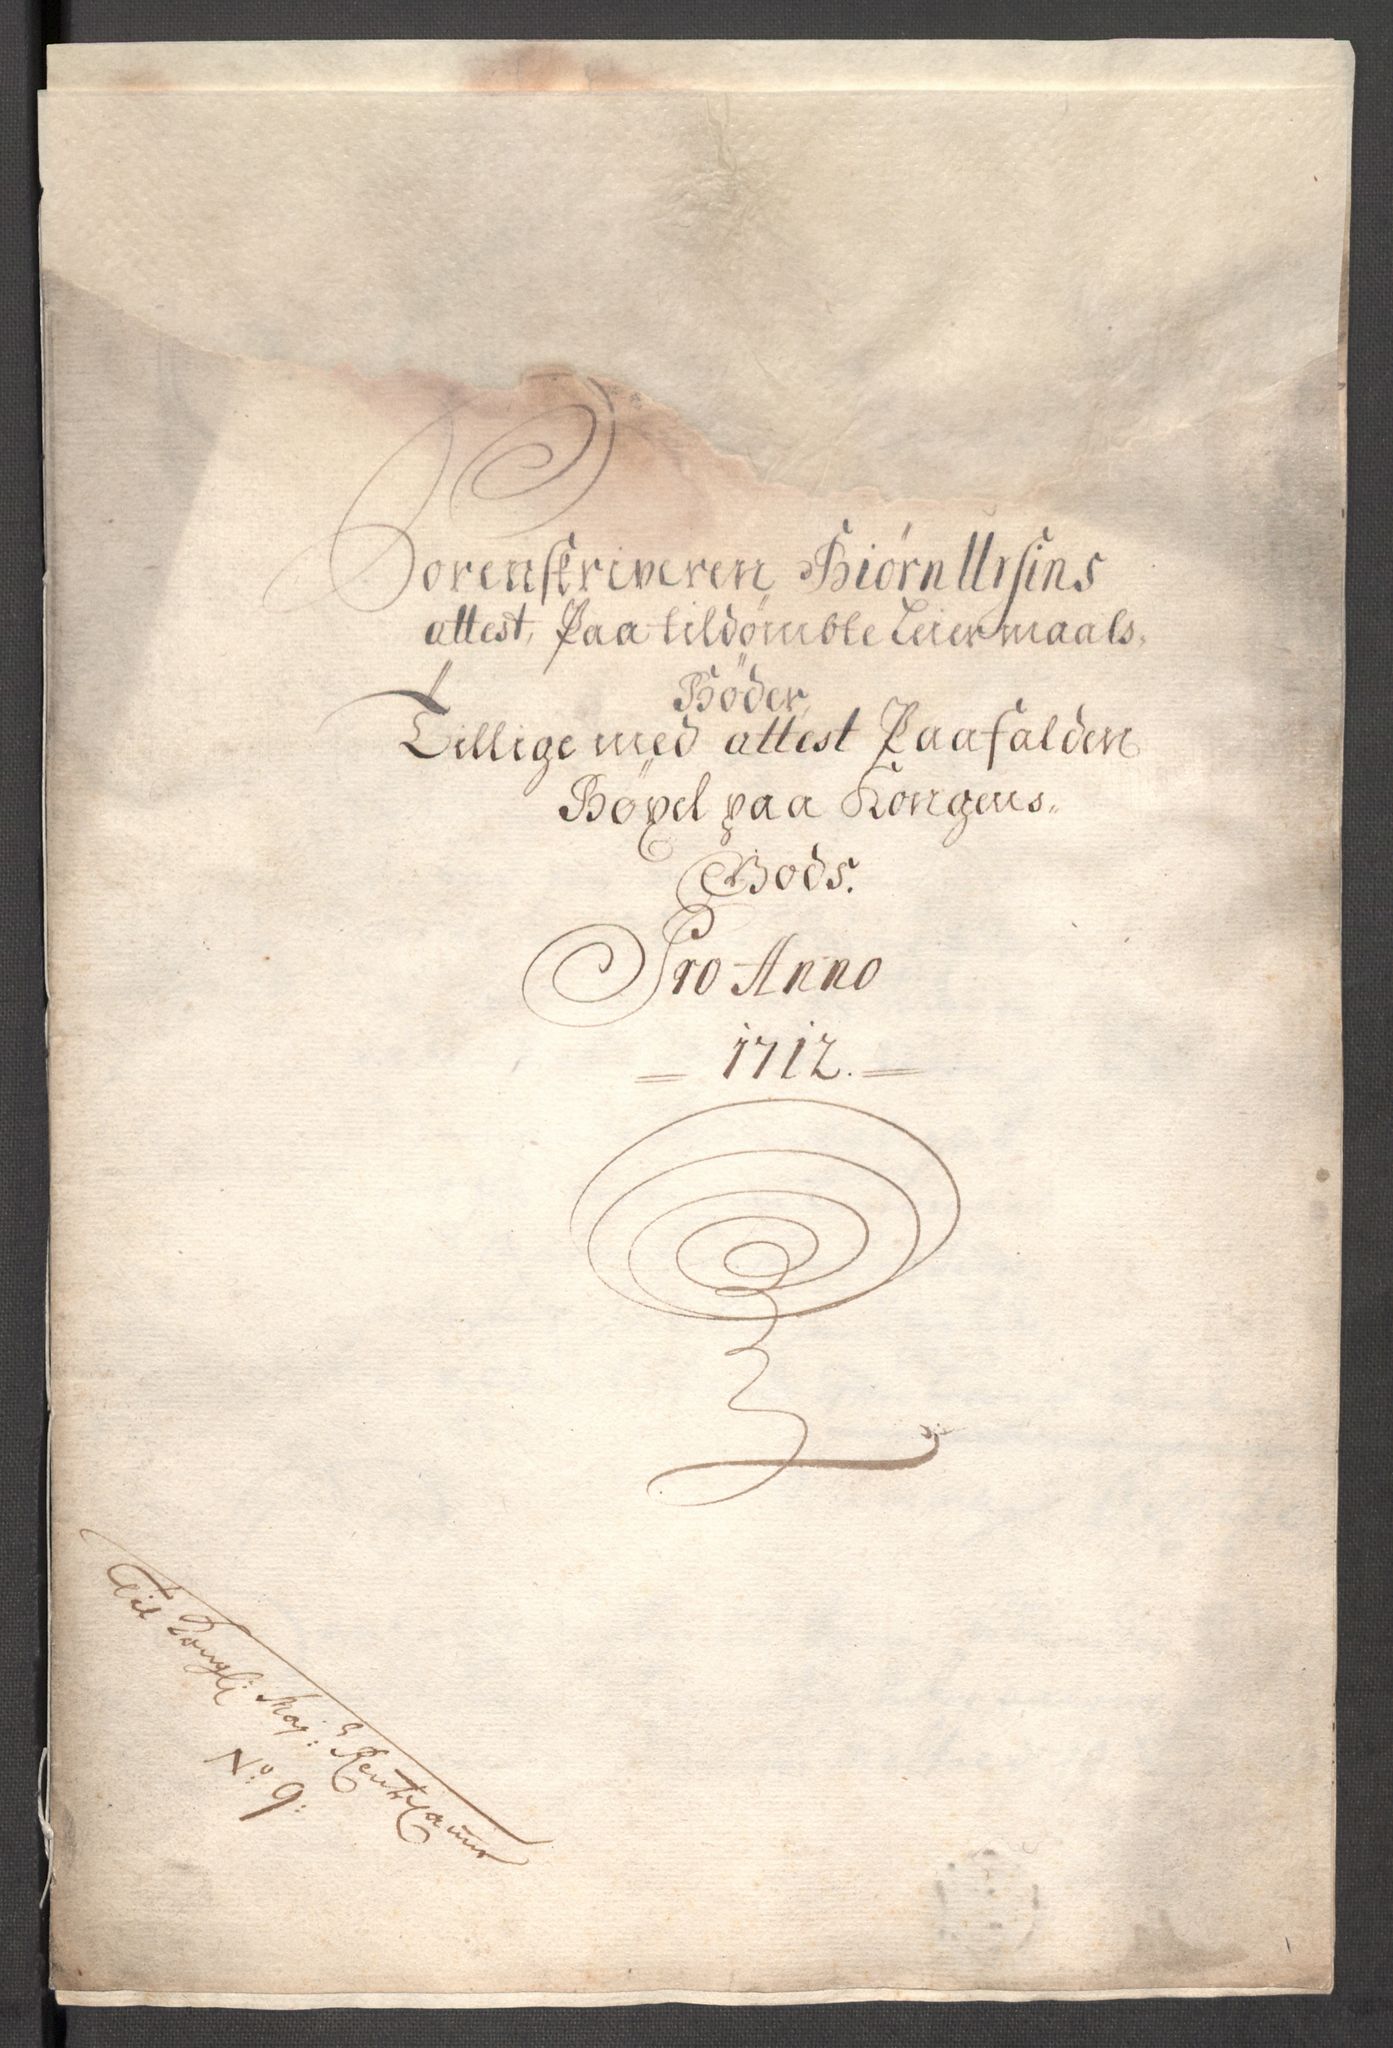 Sorenskriveren Biörn Ursins
attest, Paa tildömbte Leiermaals,
Böder,
Tillige med attest Paafalden
Böxel paa Kongens,,
Gods.
Pro Anno
1712.
Til Kongl: Maj:s Rentz Cammer
No: 9: